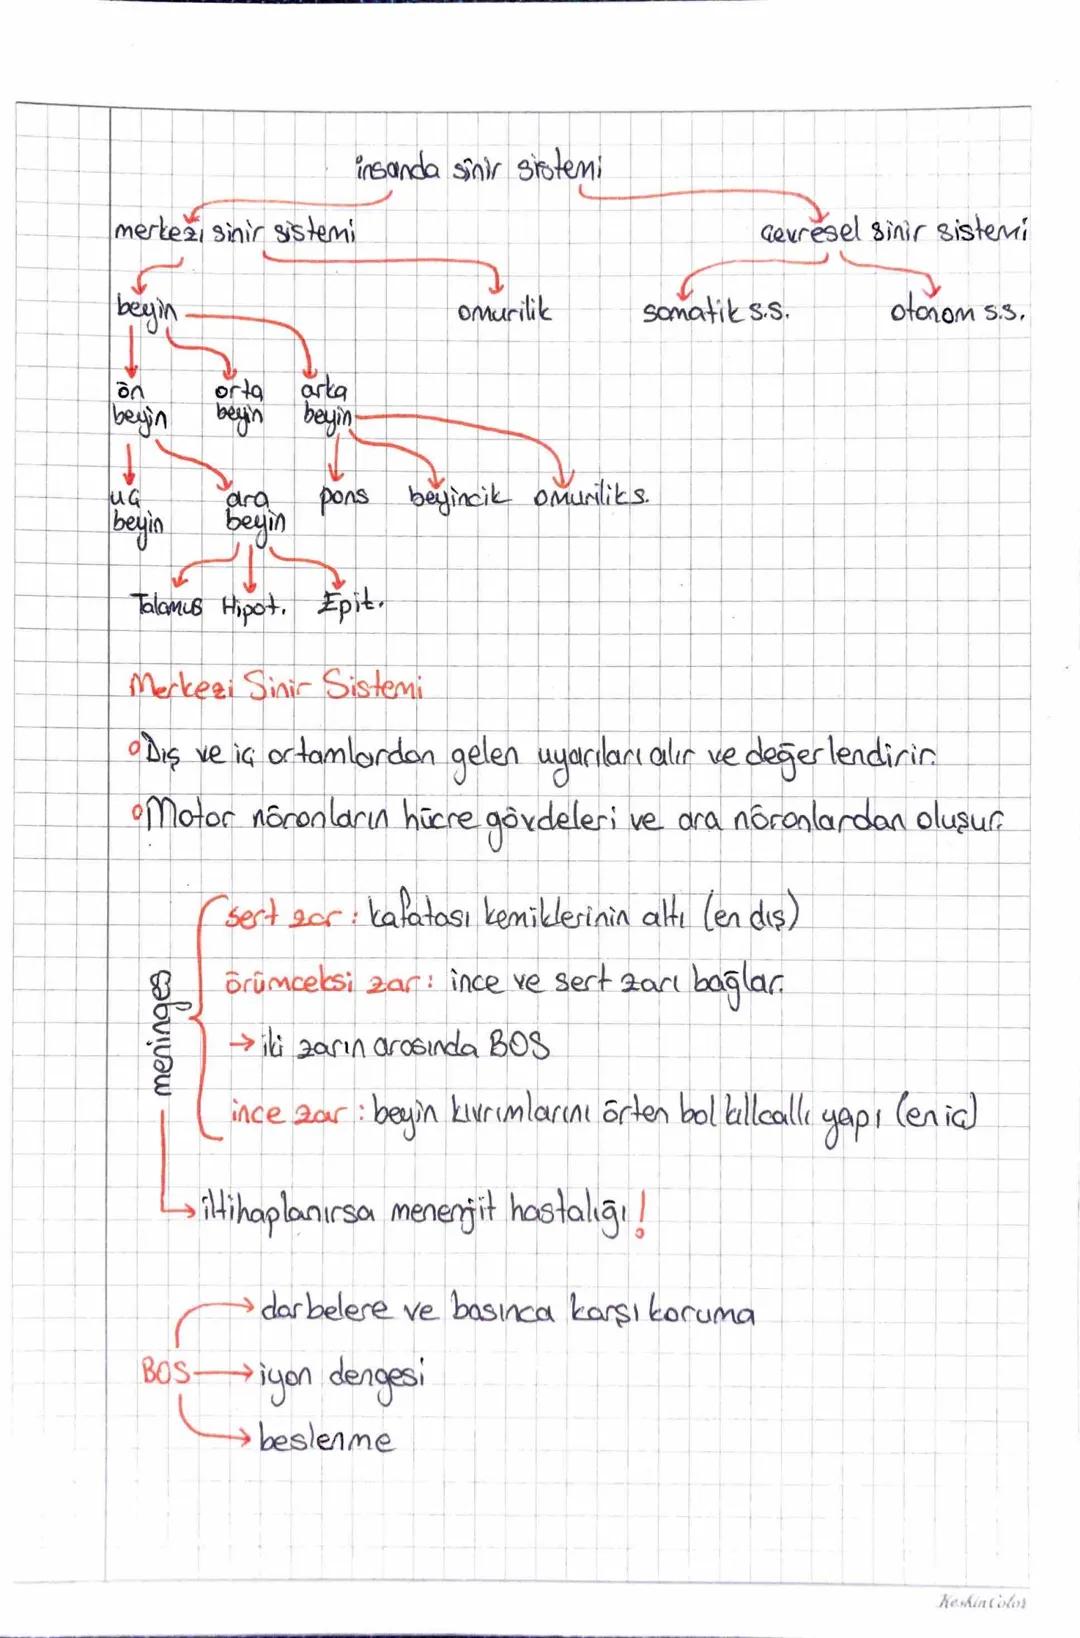 insanda sinir sistemi
merkezi sinir sistemi çevresel sinir sistemi
beyin omurilik somatik s.s. otonom s.s.
ön beyin orta beyin arka beyin
uç beyin ara beyin pons beyincik omurilik s.
Talamus Hipot. Epit.
Merkezi Sinir Sistemi
Dış ve iç ortamlardan gelen uyarıları alır ve değerlendirir.
Motor nöronların hücre gövdeleri ve ara nöronlardan oluşur.
meninges
sert zar : kafatası kemiklerinin altı (en dış)
örümceksi zar : ince ve sert zarı bağlar.
→ iki zarın arasında BOS
ince zar : beyin kıvrımlarını örten bol kılcallı yapı (en iç)
→ iltihaplanırsa menenjit hastalığı!
→ darbelere ve basınca karşı koruma
BOS → iyon dengesi
→ beslenme
KeskinColor